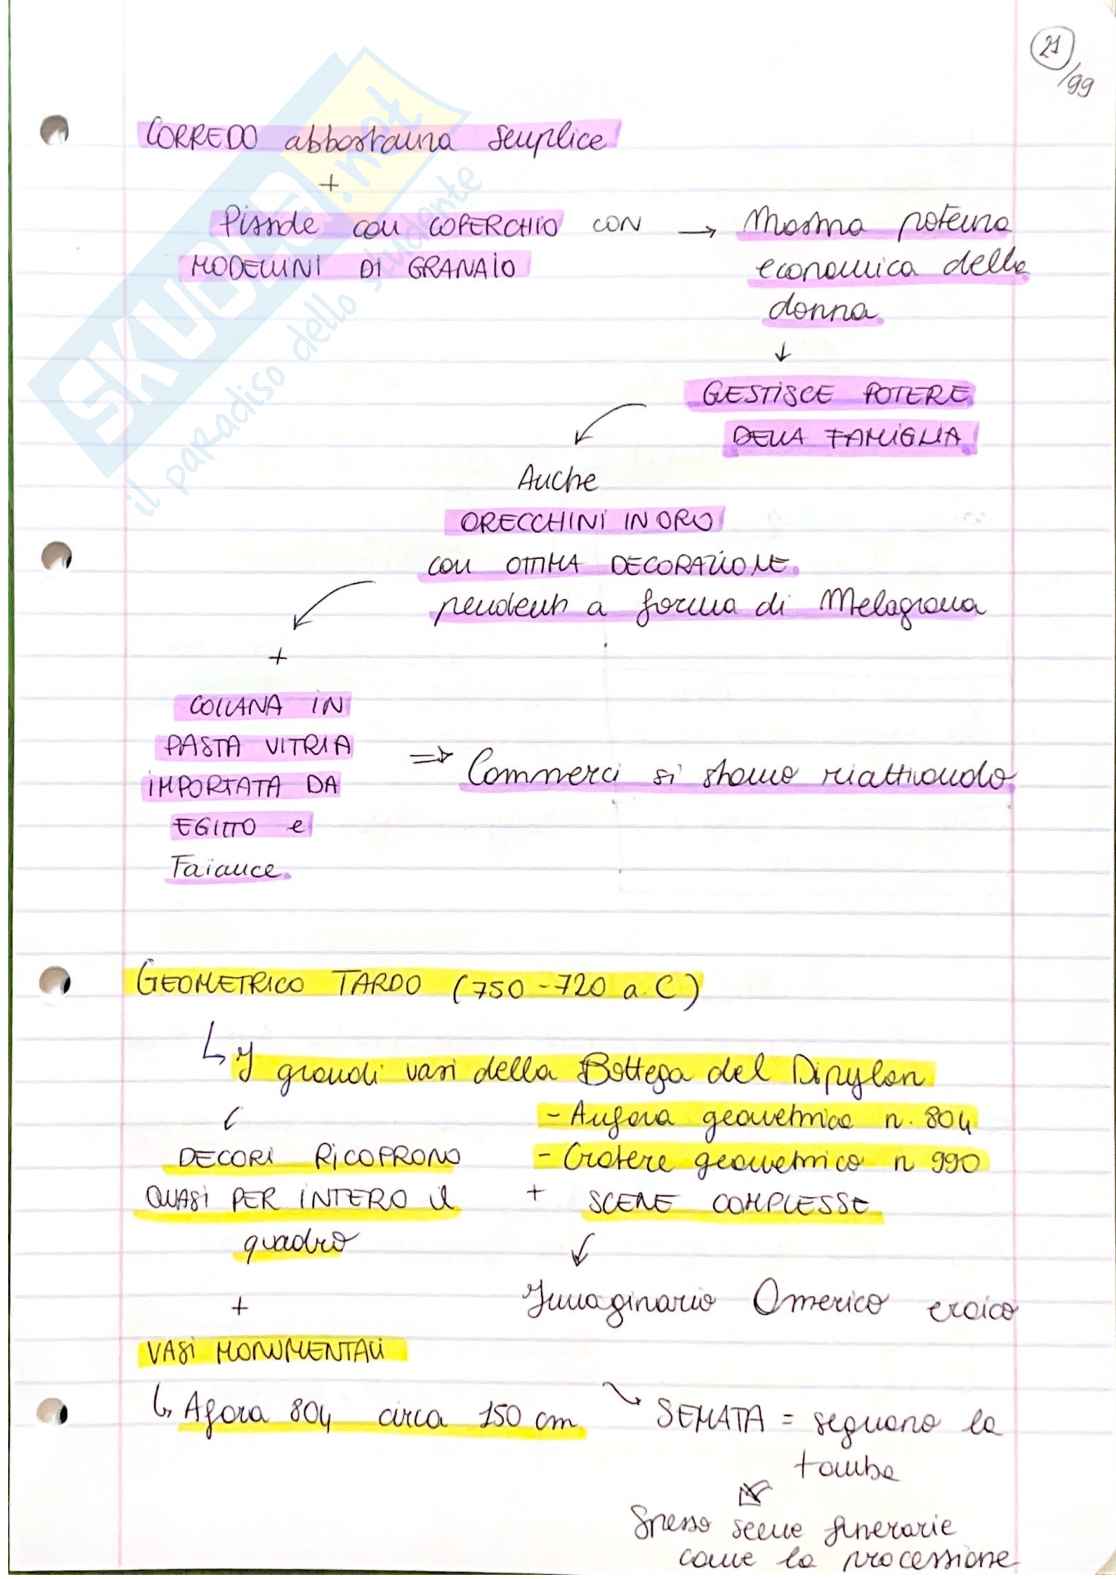 21
/99
CORREDO abbastanza semplice
+
Pisside con COPERCHIO CON → Mostra potenza
MODELLINI DI GRANAIO
economica della
donna.
↓
GESTISCE POTERE
DELLA FAMIGLIA.
Auche
ORECCHINI IN ORO
con OTTIMA DECORAZIONE.
pendenti a forma di Melagrana
+
COLLANA IN
PASTA VITRIA
IMPORTATA DA
EGITTO e
Faiance.
⇒ Commerci si stanno riattivando.
GEOMETRICO TARDO (750-720 a.C)
↳ I grandi vasi della Bottega del Dipylon
- Anfora geometrica n. 804
- Cratere geometrico n 990
DECORI RICOPRONO
QUASI PER INTERO il
quadro
+ SCENE COMPLESSE
Immaginario Omerico eroico
+
VASI MONUMENTALI
↳ Afora 804 circa 150 cm
SEMATA = segnano la
tomba
Spesso scene funerarie
come la processione
SKUOLA.net
il paradiso dello studente